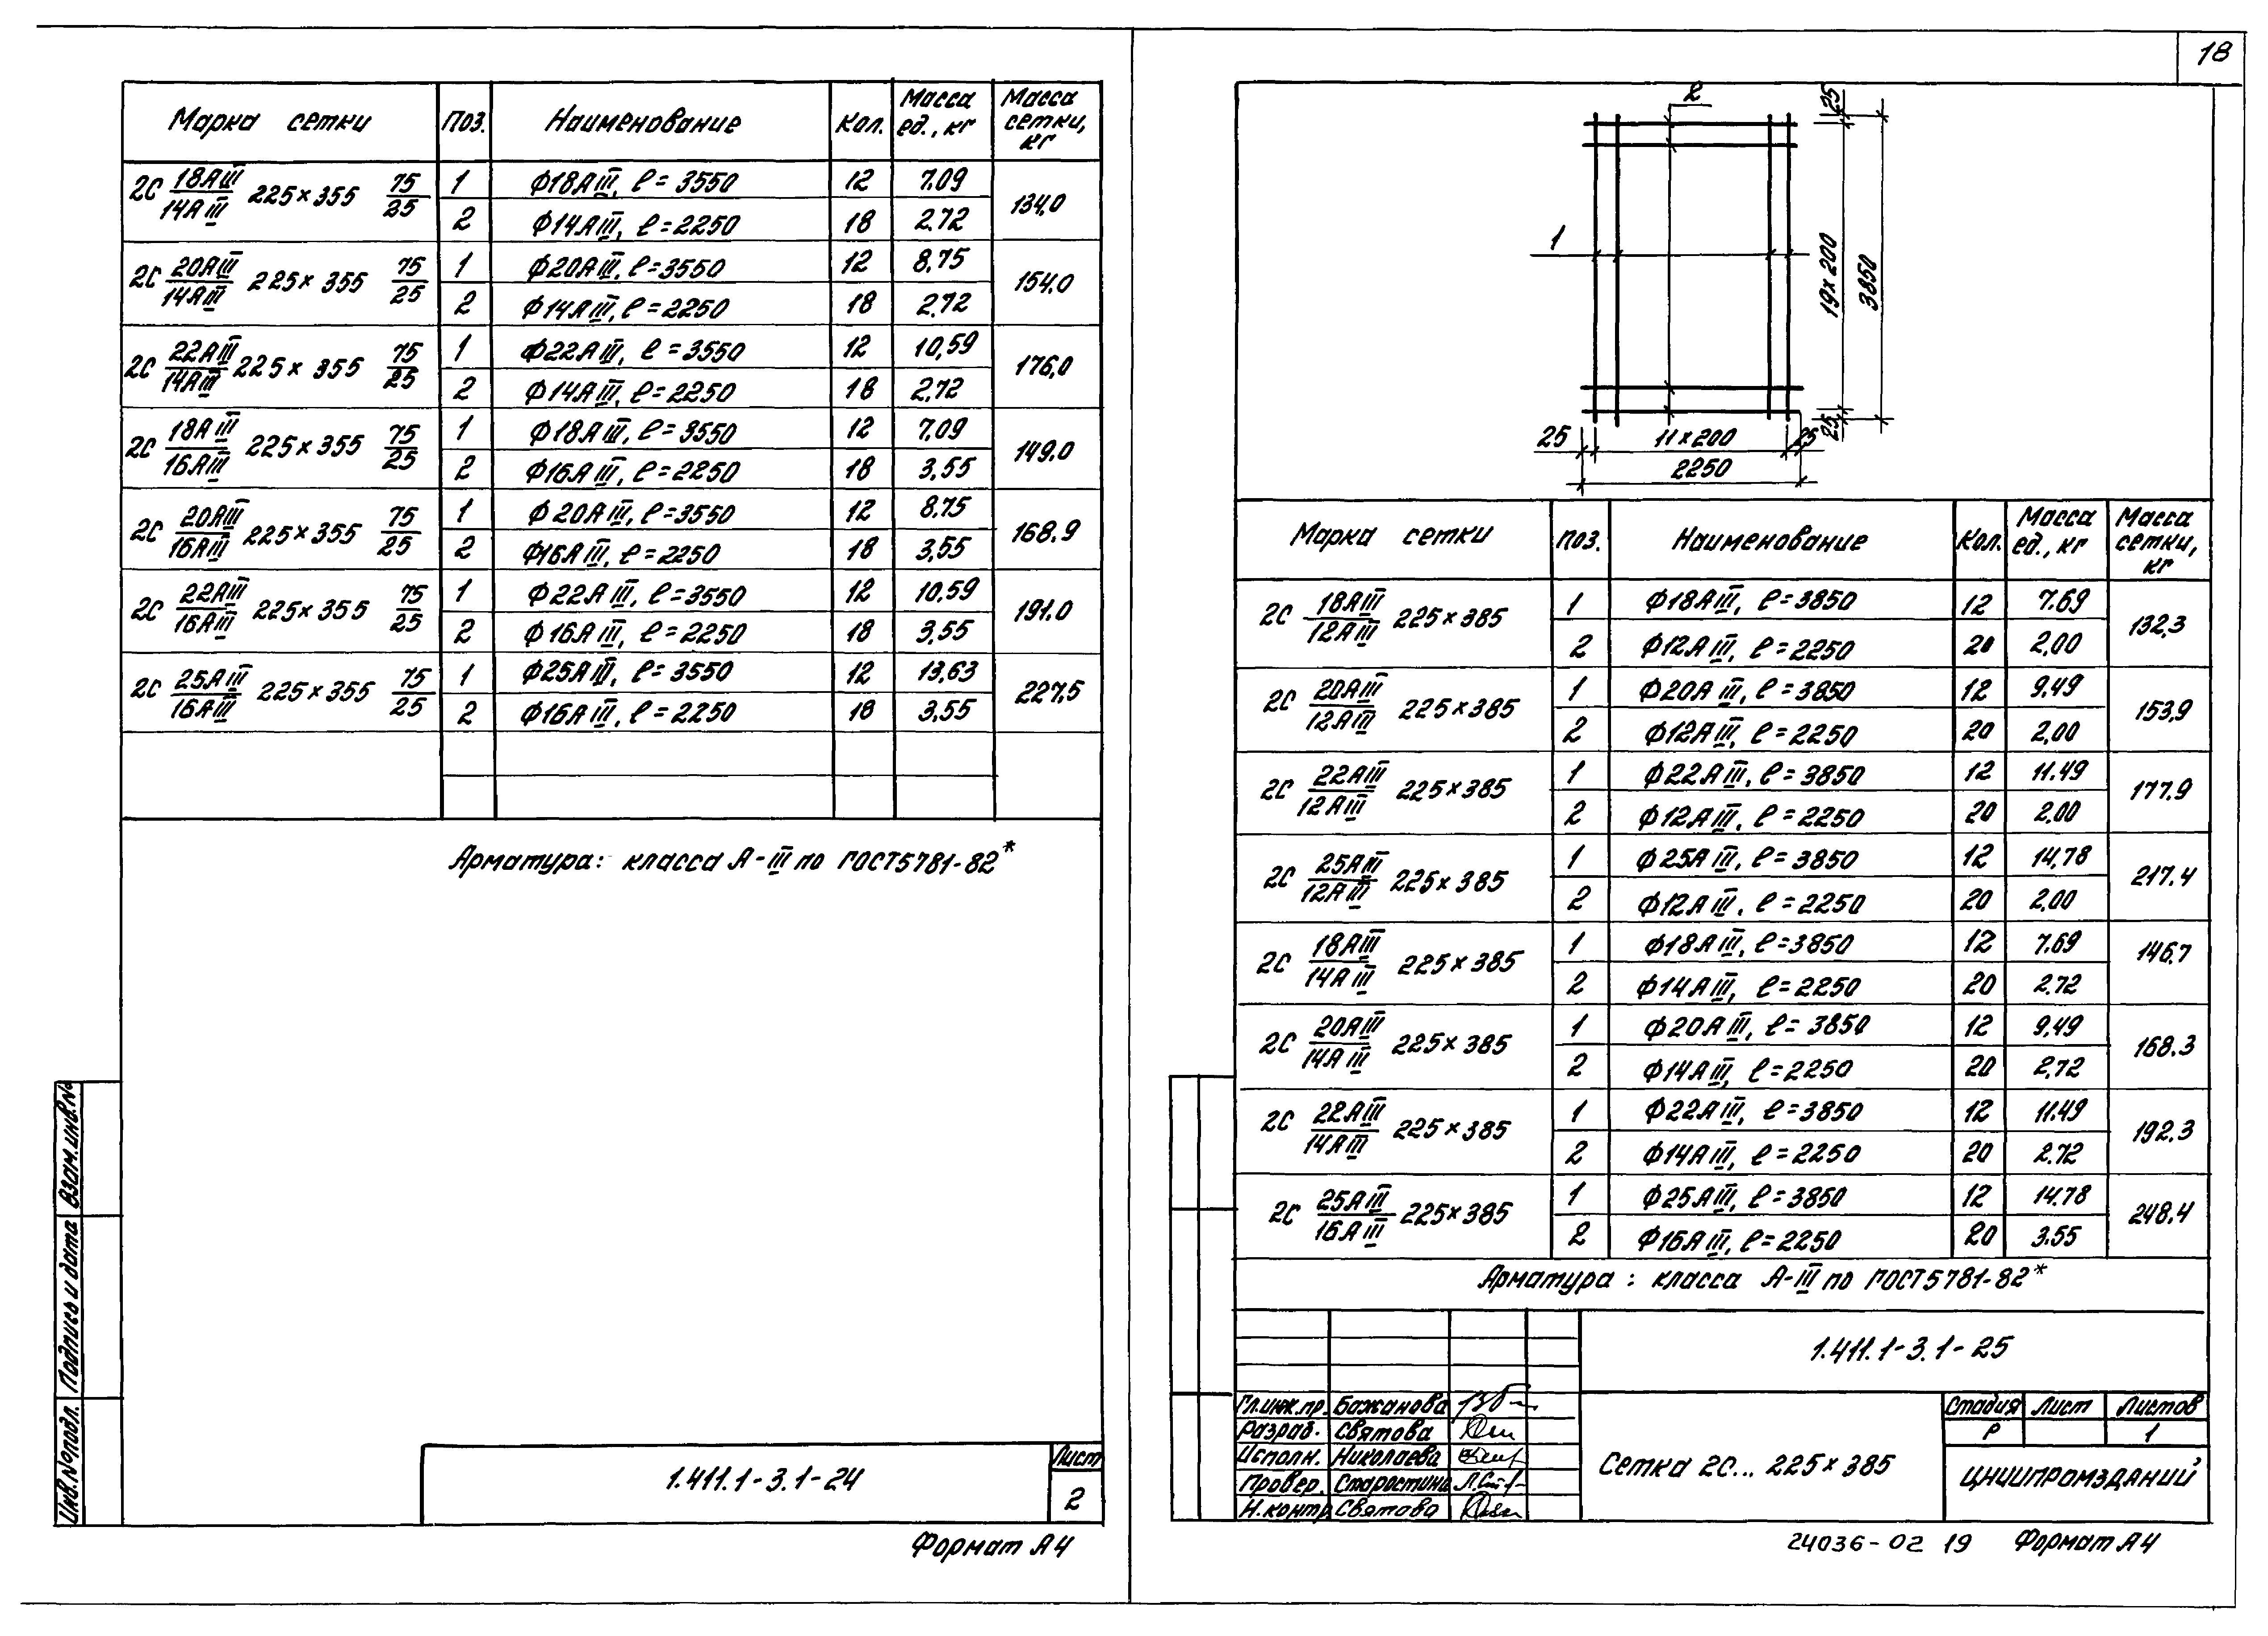 18
Марка сетки | Поз. | Наименование | Кол. | Масса ед., кг | Масса сетки, кг
2С 18АIII/14АIII 225×355 75/25 | 1 | Ф18АIII, ℓ=3550 | 12 | 7.09 | 134,0
2 | Ф14АIII, ℓ=2250 | 18 | 2.72
2С 20АIII/14АIII 225×355 75/25 | 1 | Ф20АIII, ℓ=3550 | 12 | 8,75 | 154,0
2 | Ф14АIII, ℓ=2250 | 18 | 2.72
2С 22АIII/14АIII 225×355 75/25 | 1 | Ф22АIII, ℓ=3550 | 12 | 10,59 | 176,0
2 | Ф14АIII, ℓ=2250 | 18 | 2,72
2С 18АIII/16АIII 225×355 75/25 | 1 | Ф18АIII, ℓ=3550 | 12 | 7,09 | 149,0
2 | Ф16АIII, ℓ=2250 | 18 | 3,55
2С 20АIII/16АIII 225×355 75/25 | 1 | Ф20АIII, ℓ=3550 | 12 | 8.75 | 168,9
2 | Ф16АIII, ℓ=2250 | 18 | 3,55
2С 22АIII/16АIII 225×355 75/25 | 1 | Ф22АIII, ℓ=3550 | 12 | 10,59 | 191.0
2 | Ф16АIII, ℓ=2250 | 18 | 3,55
2С 25АIII/16АIII 225×355 75/25 | 1 | Ф25АIII, ℓ=3550 | 12 | 13,63 | 227,5
2 | Ф16АIII, ℓ=2250 | 18 | 3,55
Арматура: класса А-III по ГОСТ5781-82*
Взам.инв.№
Подпись и дата
Инв.№подл.
1.411.1-3.1-24
Лист
2
Формат А4
2
1
25
19×200
3850
25
25
11×200
25
2250
Марка сетки | Поз. | Наименование | Кол. | Масса ед., кг | Масса сетки, кг
2С 18АIII/12АIII 225×385 | 1 | Ф18АIII, ℓ=3850 | 12 | 7.69 | 132,3
2 | Ф12АIII, ℓ=2250 | 20 | 2,00
2С 20АIII/12АIII 225×385 | 1 | Ф20АIII, ℓ=3850 | 12 | 9,49 | 153,9
2 | Ф12АIII, ℓ=2250 | 20 | 2,00
2С 22АIII/12АIII 225×385 | 1 | Ф22АIII, ℓ=3850 | 12 | 11.49 | 177,9
2 | Ф12АIII, ℓ=2250 | 20 | 2.00
2С 25АIII/12АIII 225×385 | 1 | Ф25АIII, ℓ=3850 | 12 | 14,78 | 217.4
2 | Ф12АIII, ℓ=2250 | 20 | 2,00
2С 18АIII/14АIII 225×385 | 1 | Ф18АIII, ℓ=3850 | 12 | 7.69 | 146,7
2 | Ф14АIII, ℓ=2250 | 20 | 2.72
2С 20АIII/14АIII 225×385 | 1 | Ф20АIII, ℓ=3850 | 12 | 9,49 | 168.3
2 | Ф14АIII, ℓ=2250 | 20 | 2,72
2С 22АIII/14АIII 225×385 | 1 | Ф22АIII, ℓ=3850 | 12 | 11.49 | 192,3
2 | Ф14АIII, ℓ=2250 | 20 | 2.72
2С 25АIII/16АIII 225×385 | 1 | Ф25АIII, ℓ=3850 | 12 | 14.78 | 248,4
2 | Ф16АIII, ℓ=2250 | 20 | 3.55
Арматура: класса А-III по ГОСТ5781-82*
1.411.1-3.1-25
Гл.инж.пр. Бажанова
Разраб. Святова
Исполн. Николаева
Провер. Старостина
Н.контр. Святова
Сетка 2С... 225×385
Стадия Лист Листов
Р 1
ЦНИИПРОМЗДАНИЙ
24036-02 19 Формат А4